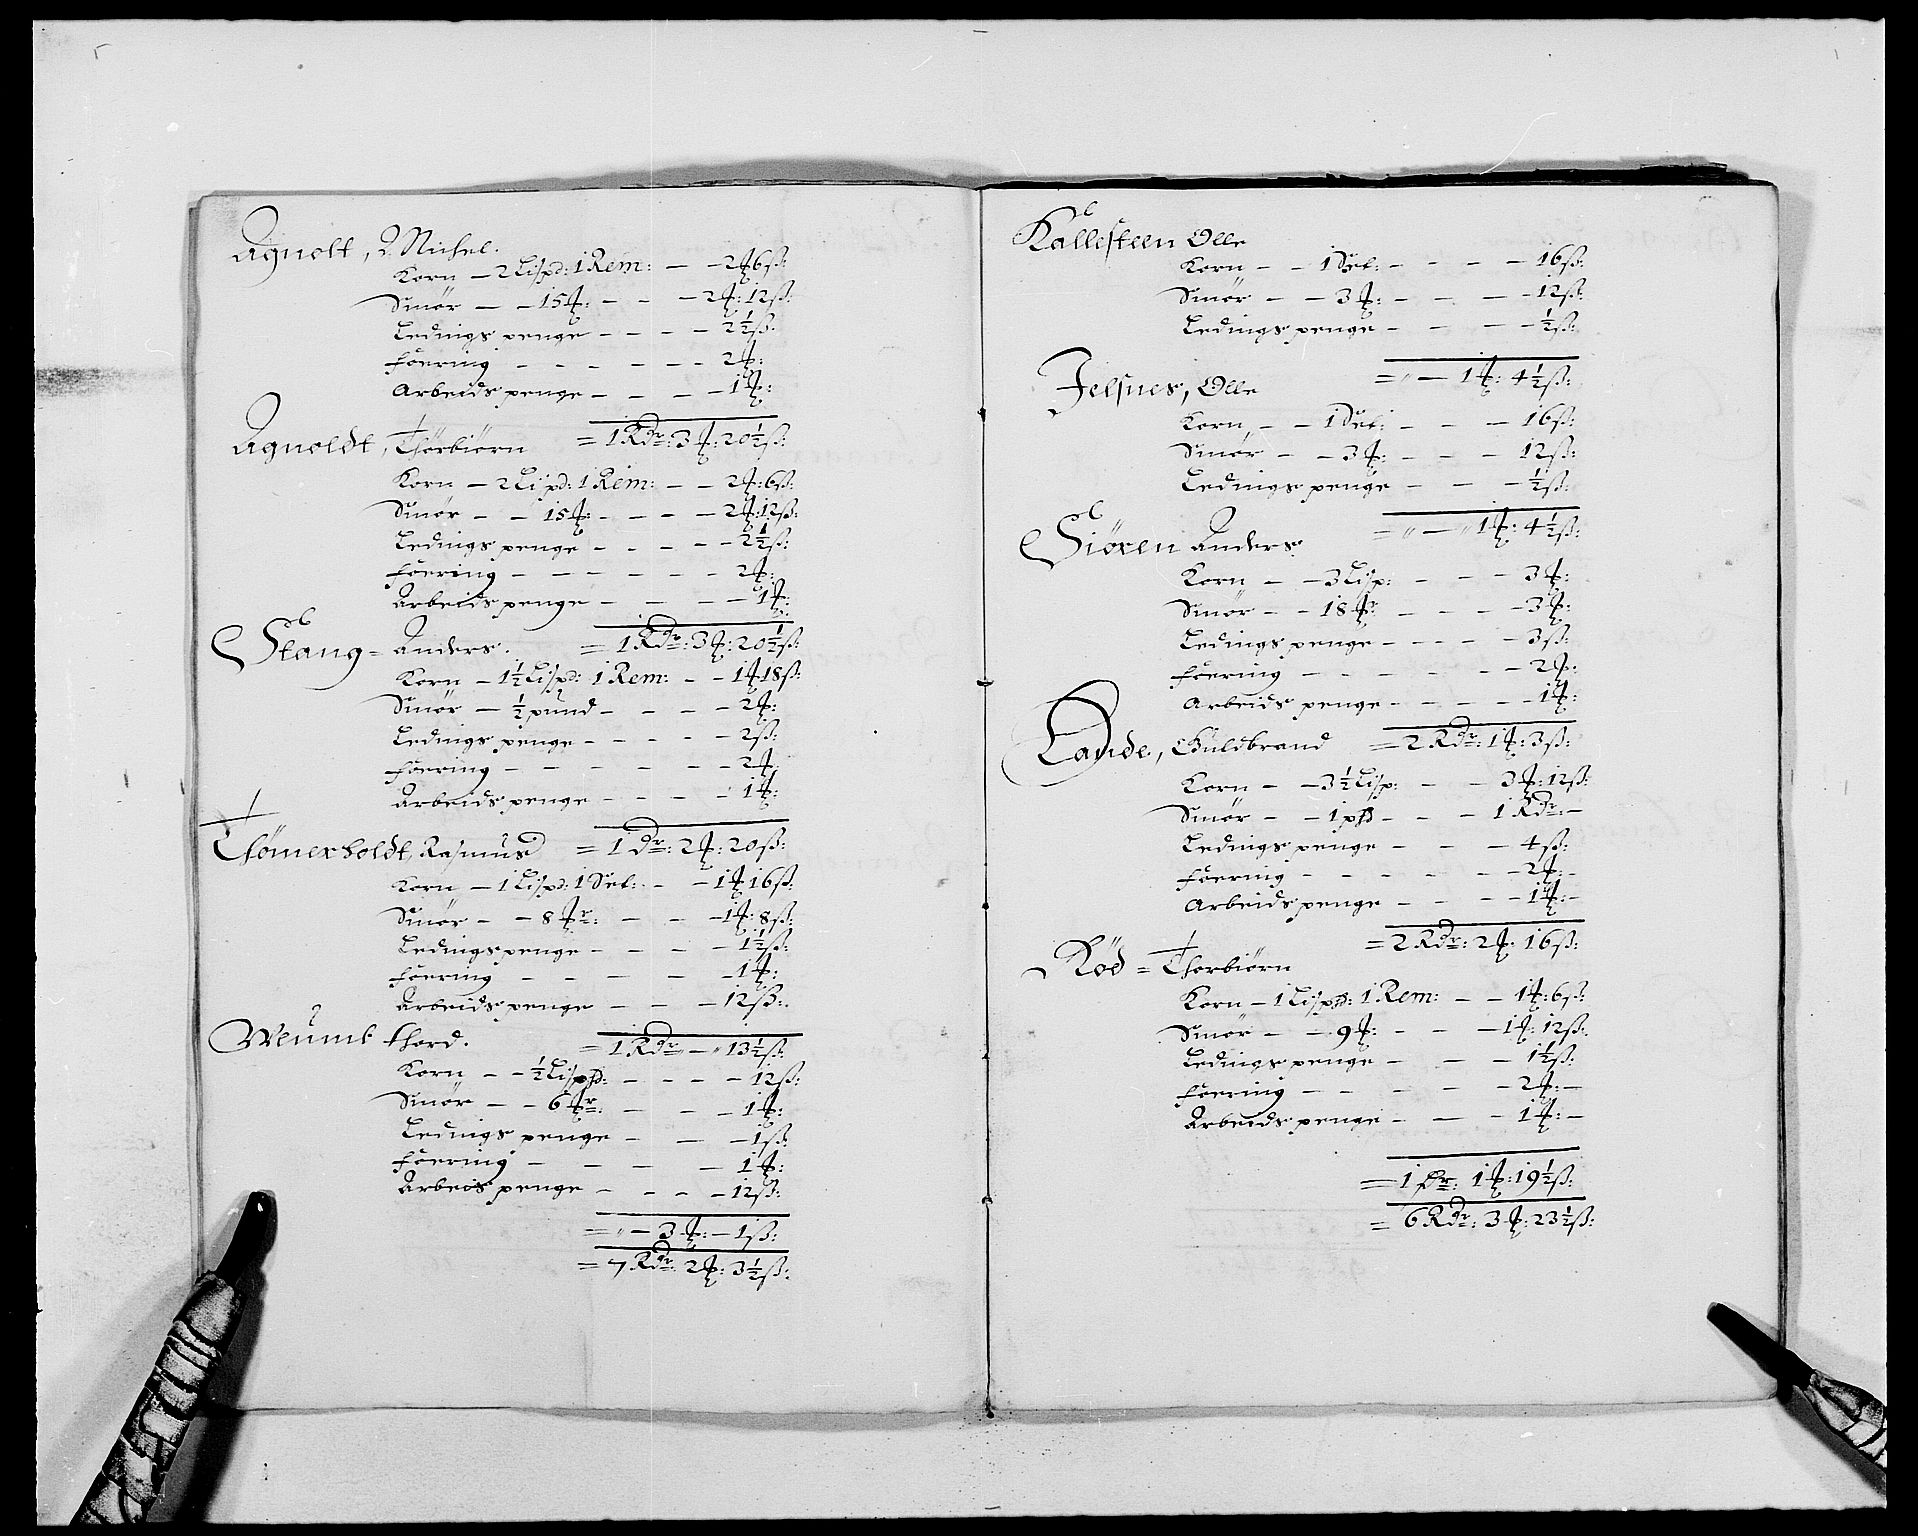 Agnolt, Michel.
Korn – 2 Lispd: 1 Rem: – – 2 ₰ 6 ß:
Smør – – 15 ₰: – – – 2 ₰: 12 ß:
Ledings penge – – – – 2½ ß:
Foering – – – – – – 2 ₰:
Arbeids penge – – – – 1 ₰:
= 1 Rdr: 3 ₰: 20½ ß:
Agnoldt, Thorbiørn
Korn – 2 Lispd: 1 Rem: – – 2 ₰: 6 ß:
Smør – – 15 ₰: – – – – 2 ₰: 12 ß:
Ledings penge – – – – – 2½ ß:
Foering – – – – – – 2 ₰:
Arbeids penge – – – – 1 ₰:
= 1 Rdr: 3 ₰: 20½ ß:
Stang – Anders.
Korn – 1½ Lispd: 1 Rem: – – 1 ₰ 18 ß:
Smør – ½ pund – – – – 2 ₰:
Ledings penge – – – – – 2 ß:
Foering – – – – – – – 2 ₰:
Arbeids penge – – – – 1 ₰:
= 1 Dr: 2 ₰: 20 ß:
Thømerholdt, Rasmus
Korn – 1 Lispd: 1 Set: – – 1 ₰ 16 ß:
Smør – – 8 ₰r: – – – 1 ₰: 8 ß:
Ledings penge – – – – 1½ ß:
Foering – – – – – 1 ₰:
Arbeids penge – – – 12 ß:
= 1 Rdr – " 13½ ß:
Thord.
Korn – – ½ Lispd: – – – – 12 ß:
Smør – – 6 ₰r: – – – 1 ₰:
Ledings penge – – – 1 ß:
Foering – – – – 1 ₰:
Arbeids penge – – – – 12 ß:
= " – 3 ₰: – 1 ß:
= 7 Rdr: 2 ₰: 3½ ß:
Kallesteen Olle
Korn – – 1 Set: – – – – 16 ß:
Smør – – 3 ₰: – – – – 12 ß:
Ledings penge – – – – ½ ß:
= " – 1 ₰: 4½ ß:
Jelsnes, Olle
Korn, – – 1 Set: – – – 16 ß:
Smør – – 3 ₰: – – – 12 ß:
Ledings penge – – – ½ ß:
= " – " 1 ₰: 4½ ß:
Siøren Anders
Korn – – 3 Lisp: – – – 3 ₰:
Smør – – 18 ₰: – – – 3 ₰:
Ledings penge – – – – 3 ß:
Foering – – – – – – 2 ₰:
Arbeids penge – – – – – 1 ₰:
= 2 Rdr: 1 ₰: 3 ß:
Lande, Guldbrand
Korn – – 3½ Lisp: – – 3 ₰: 12 ß:
Smør – – 1 pd – – – 1 Rdr: –
Ledings penge – – – 4 ß:
Foering – – – – – – 2 ₰: –
Arbeids penge – – – – 1 ₰: –
= 2 Rdr: 2 ₰: 16 ß:
Röd = Thorbiørn
Korn – 1 Lispd: 1 Rem: – – 1 ₰: 6 ß:
Smør – – 9 ₰: – – – 1 ₰: 12 ß:
Ledings penge – – – 1½ ß:
Foering – – – – – 2 ₰: –
Arbeids penge – – – 1 ₰: –
= 1 Dr: 1 ₰: 19½ ß:
= 6 Rdr: 3 ₰: 23½ ß: